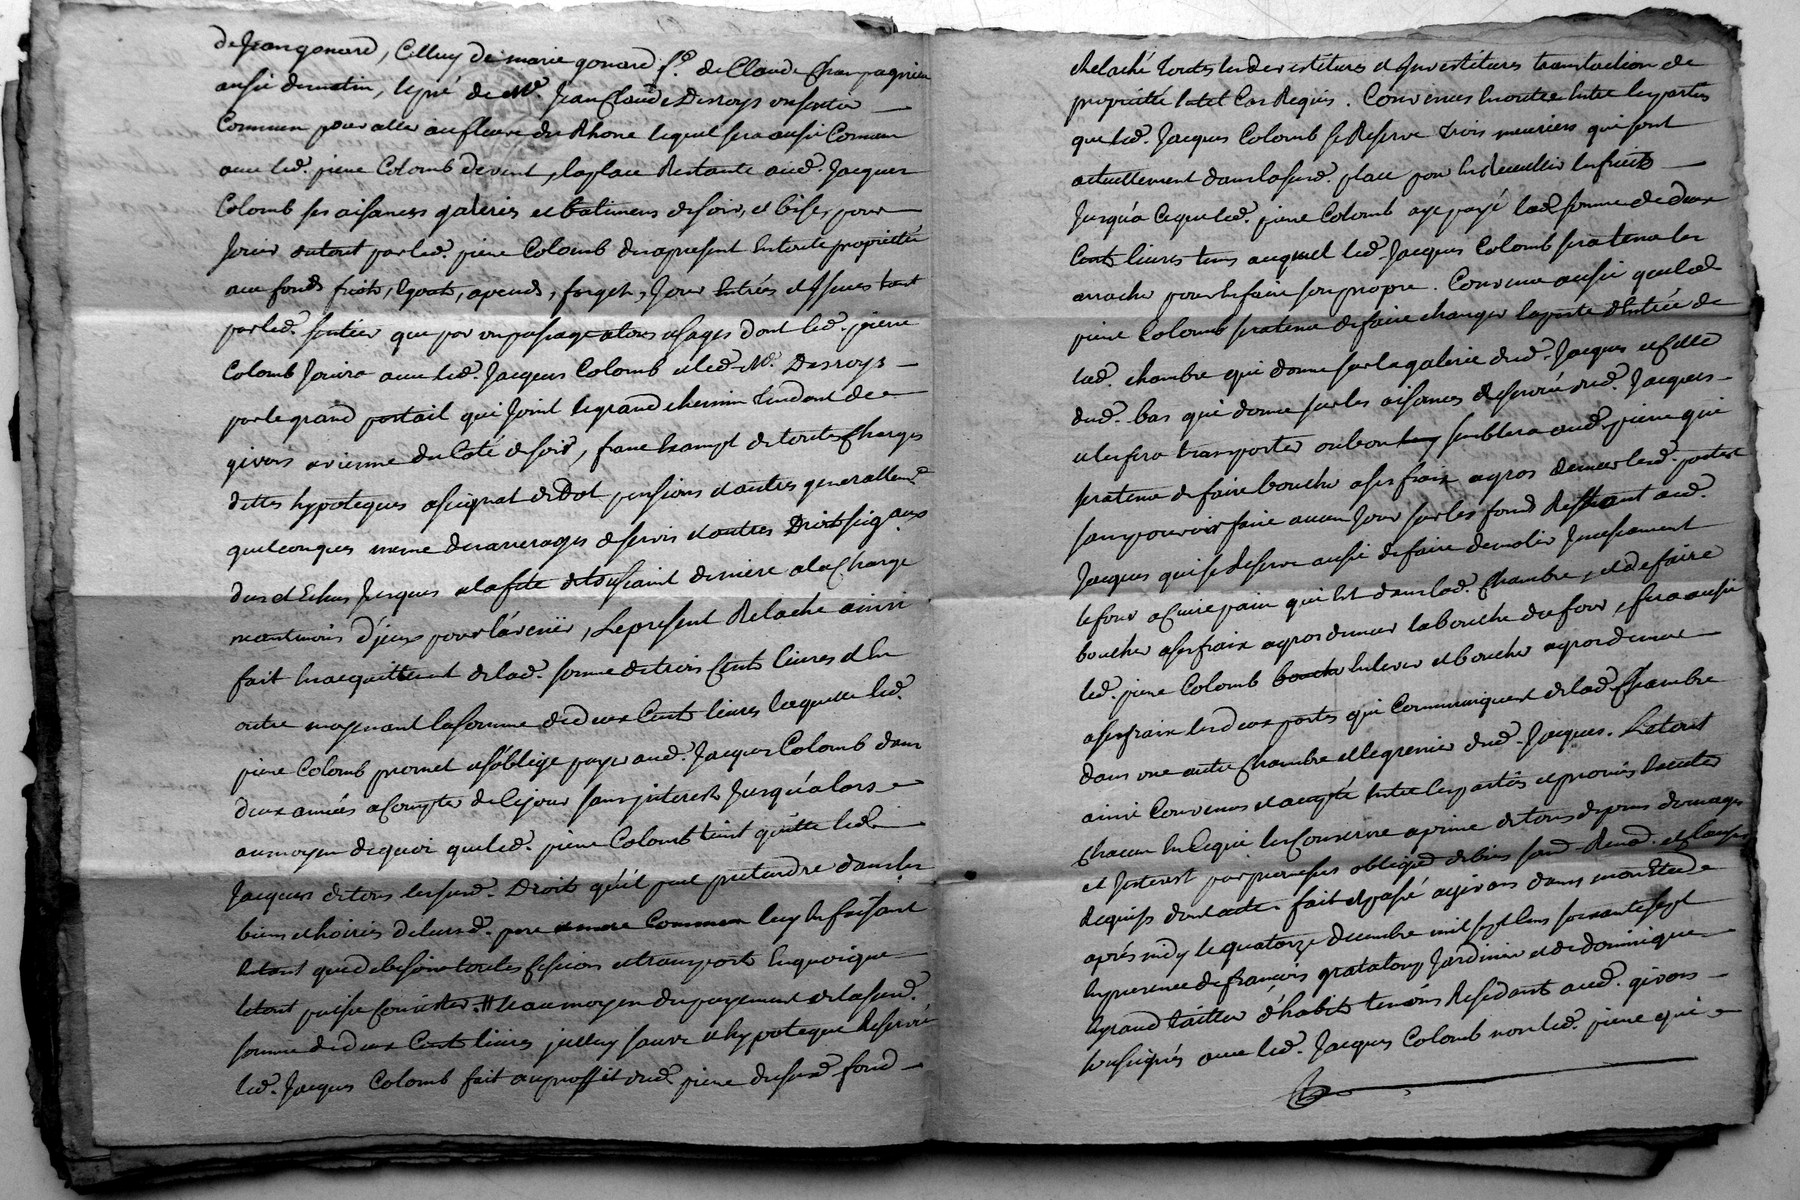 de Jean gonard, Celluy de marie gonard f.e de Claude Champagnieu
aussi de matin, le pré de Mr. Jean Claude Desroys un sentier
Commun pour aller au fleuve du Rhone lequel sera aussi Commun
avec led. pierre Colomb de vent, la place Restante aud. Jacques
Colomb ses aisances galeries et batimens de soir, et bise, pour
Jouir du tout par led. pierre Colomb des apresent en toute proprietté
aux fonds fruits, egouts, apends, forgets, Jour Entrées et Issues tant
par led. sentier que par un passage a tous usages dont led. pierre
Colomb Jouira avec led. Jacques Colomb et led. Mr. Desroys
par le grand portail qui Joint le grand chemin tendant de
givors a vienne du Coté de soir, franc Exampt de toutes Charges
dettes hypoteques assignat de Dot pensions et autres generallemt.
quelconques meme des arrerages de servis et autres Droits seig.aux
dus et Echus Jusques a la fete de toussaint derniere a la Charge
neantmoins d'jceux pour l'avenir, Le present Relache ainsi
fait en acquittement de lad. somme de trois Cents livres et En
outre moyenant la somme de deux Cents livres laquelle led.
pierre Colomb promet et s'oblige payer aud. Jacques Colomb dans
deux années a Compter de Ce jour sans jnterest Jusqu'alors
au moyen de quoi que led. pierre Colomb tient quitte led.
Jacques de tous les susd. Droits qu'il peut pretendre dans les
biens et hoiries de leursd. pere et mere Commun luy En faisant
Entant que de besoin toutes Cessions et transports En quoi que
le tout puisse Consister. # et au moyen du payement de la susd.
somme de deux Cents livres jcelluy sauve et hypoteque Reservée
led. Jacques Colomb fait au proffit dud. pierre du susd. fond
et Relaché toutes les devestitures et Investitures translaction de
proprietté En tel Cas Requis. Convenus En outre Entre les parties
que led. Jacques Colomb se Reserve trois meuriers qui sont
actuellement dans la susd. place pour En Recueillir les fruits
Jusqu'a Ce que led. pierre Colomb aye payé lad. somme de deux
Cents livres tems auquel led. Jacques Colomb sera tenu les
arracher pour En faire son propre. Convenu aussi que led.
pierre Colomb sera tenu de faire changer la porte d'Entrée de
lad. chambre qui donne sur la galerie dud. Jacques et celle
dud. bas qui donne sur les aisances de servir dud. Jacques
et les fera transporter ou bon luy semblera aud. pierre qui
sera tenu de faire boucher a ses frais a gros de mur lesd. portes
sans pouvoir faire aucun Jour sur les fond Restant aud.
Jacques qui se Reserve aussi de faire demolir Jncessament
le four a Cuire pain qui Est dans lad. Chambre, et de faire
boucher a ses frais a gros de mur la bouche du four, sera aussi
led. pierre Colomb boucher Enlever et boucher a gros de mur
a ses frais les deux portes qui Communiquent de lad. Chambre
dans une autre Chambre et le grenier dud. Jacques. Le tout
ainsi Convenu et accepté Entre les parties et promis Executer
Chacun En Ce qui les Conserne a peine de tous depens domages
et Jnterest par promesses obligeon. de biens soub. Renon. et Clauses
Requises dont acte. fait et passé a givors dans mon Etude
après midy le quatorze decembre mil sept Cens soixante sept
En presence de francois grataloup Jardinier et de dominique
legrand tailleur d'habits temoins Residants aud. givors
soussignés avec led. Jacques Colomb non led. pierre qui